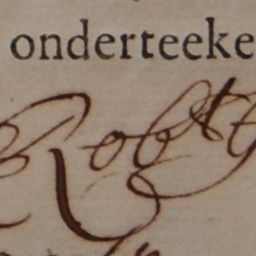 onderteeke
Robt